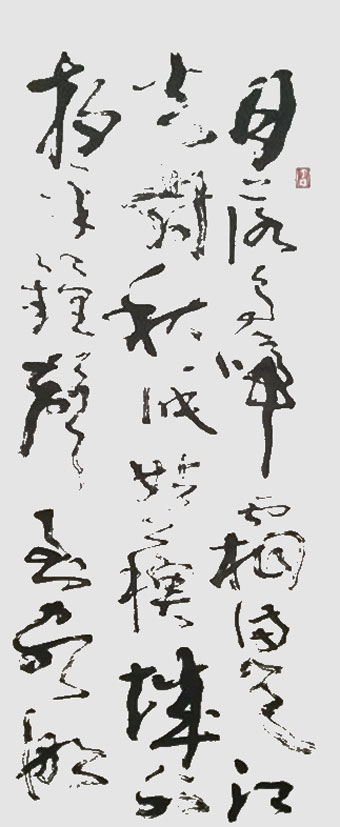 月落烏啼霜滿天江
火對愁眠姑蘇城外
夜半鐘聲到客船